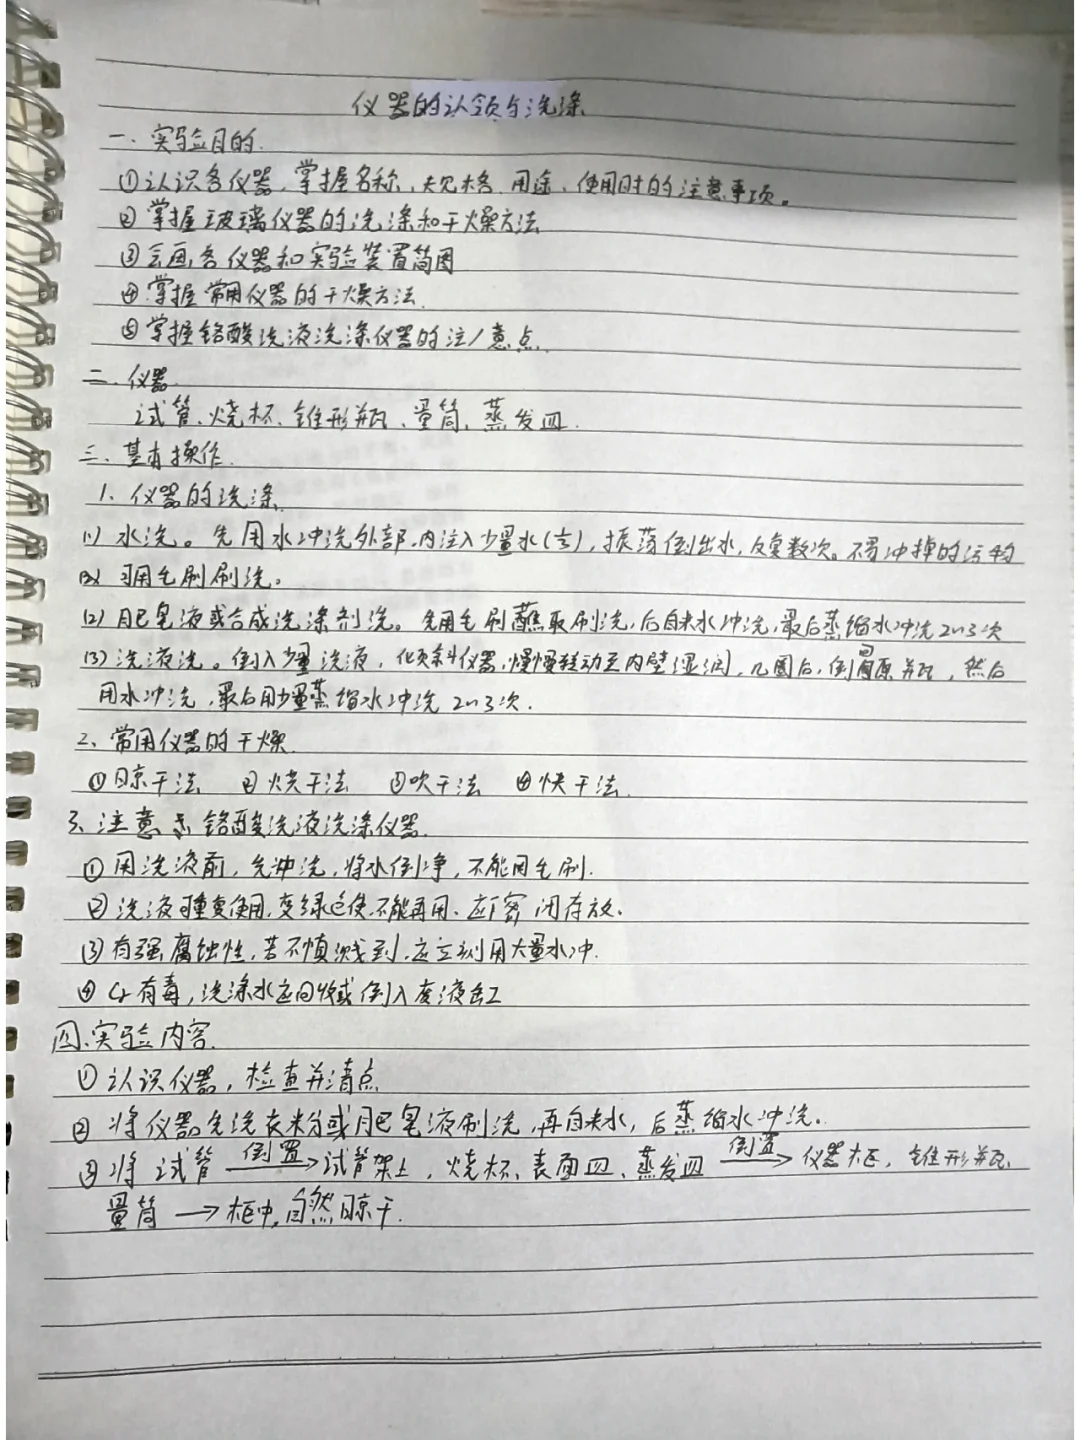 仪器的认领与洗涤
一、实验目的.
①认识各仪器，掌握名称、规格、用途、使用时的注意事项。
②掌握玻璃仪器的洗涤和干燥方法
③会画各仪器和实验装置简图
④掌握常用仪器的干燥方法.
⑤掌握铬酸洗液洗涤仪器的注意点.
二、仪器
试管、烧杯、锥形瓶、量筒、蒸发皿.
三、基本操作.
1、仪器的洗涤.
(1) 水洗。先用水冲洗外部，内注入少量水(⅓)，振荡倒出水，反复数次。不易冲掉的污物
可用毛刷刷洗。
(2) 肥皂液或合成洗涤剂洗。先用毛刷蘸取刷洗，后自来水冲洗，最后蒸馏水冲洗2~3次
(3) 洗液洗。倒入少量洗液，倾斜仪器，慢慢转动至内壁湿润，几圈后，倒回原瓶，然后
用水冲洗，最后用少量蒸馏水冲洗2~3次.
2、常用仪器的干燥.
①晾干法 ②烤干法 ③吹干法 ④快干法.
3、注意点 铬酸洗液洗涤仪器.
①用洗液前，先冲洗，将水倒净，不能用毛刷.
②洗液可重复使用，变绿色便不能再用、应密闭存放.
③有强腐蚀性，若不慎溅到，应立刻用大量水冲.
④Cr有毒，洗涤水应回收或倒入废液缸
四、实验内容.
①认识仪器，检查并清点
②将仪器先洗衣粉或肥皂液刷洗，再自来水，后蒸馏水冲洗.
③将试管 倒置→ 试管架上，烧杯、表面皿、蒸发皿 倒置→ 仪器柜，锥形瓶、
量筒 → 柜中，自然晾干.